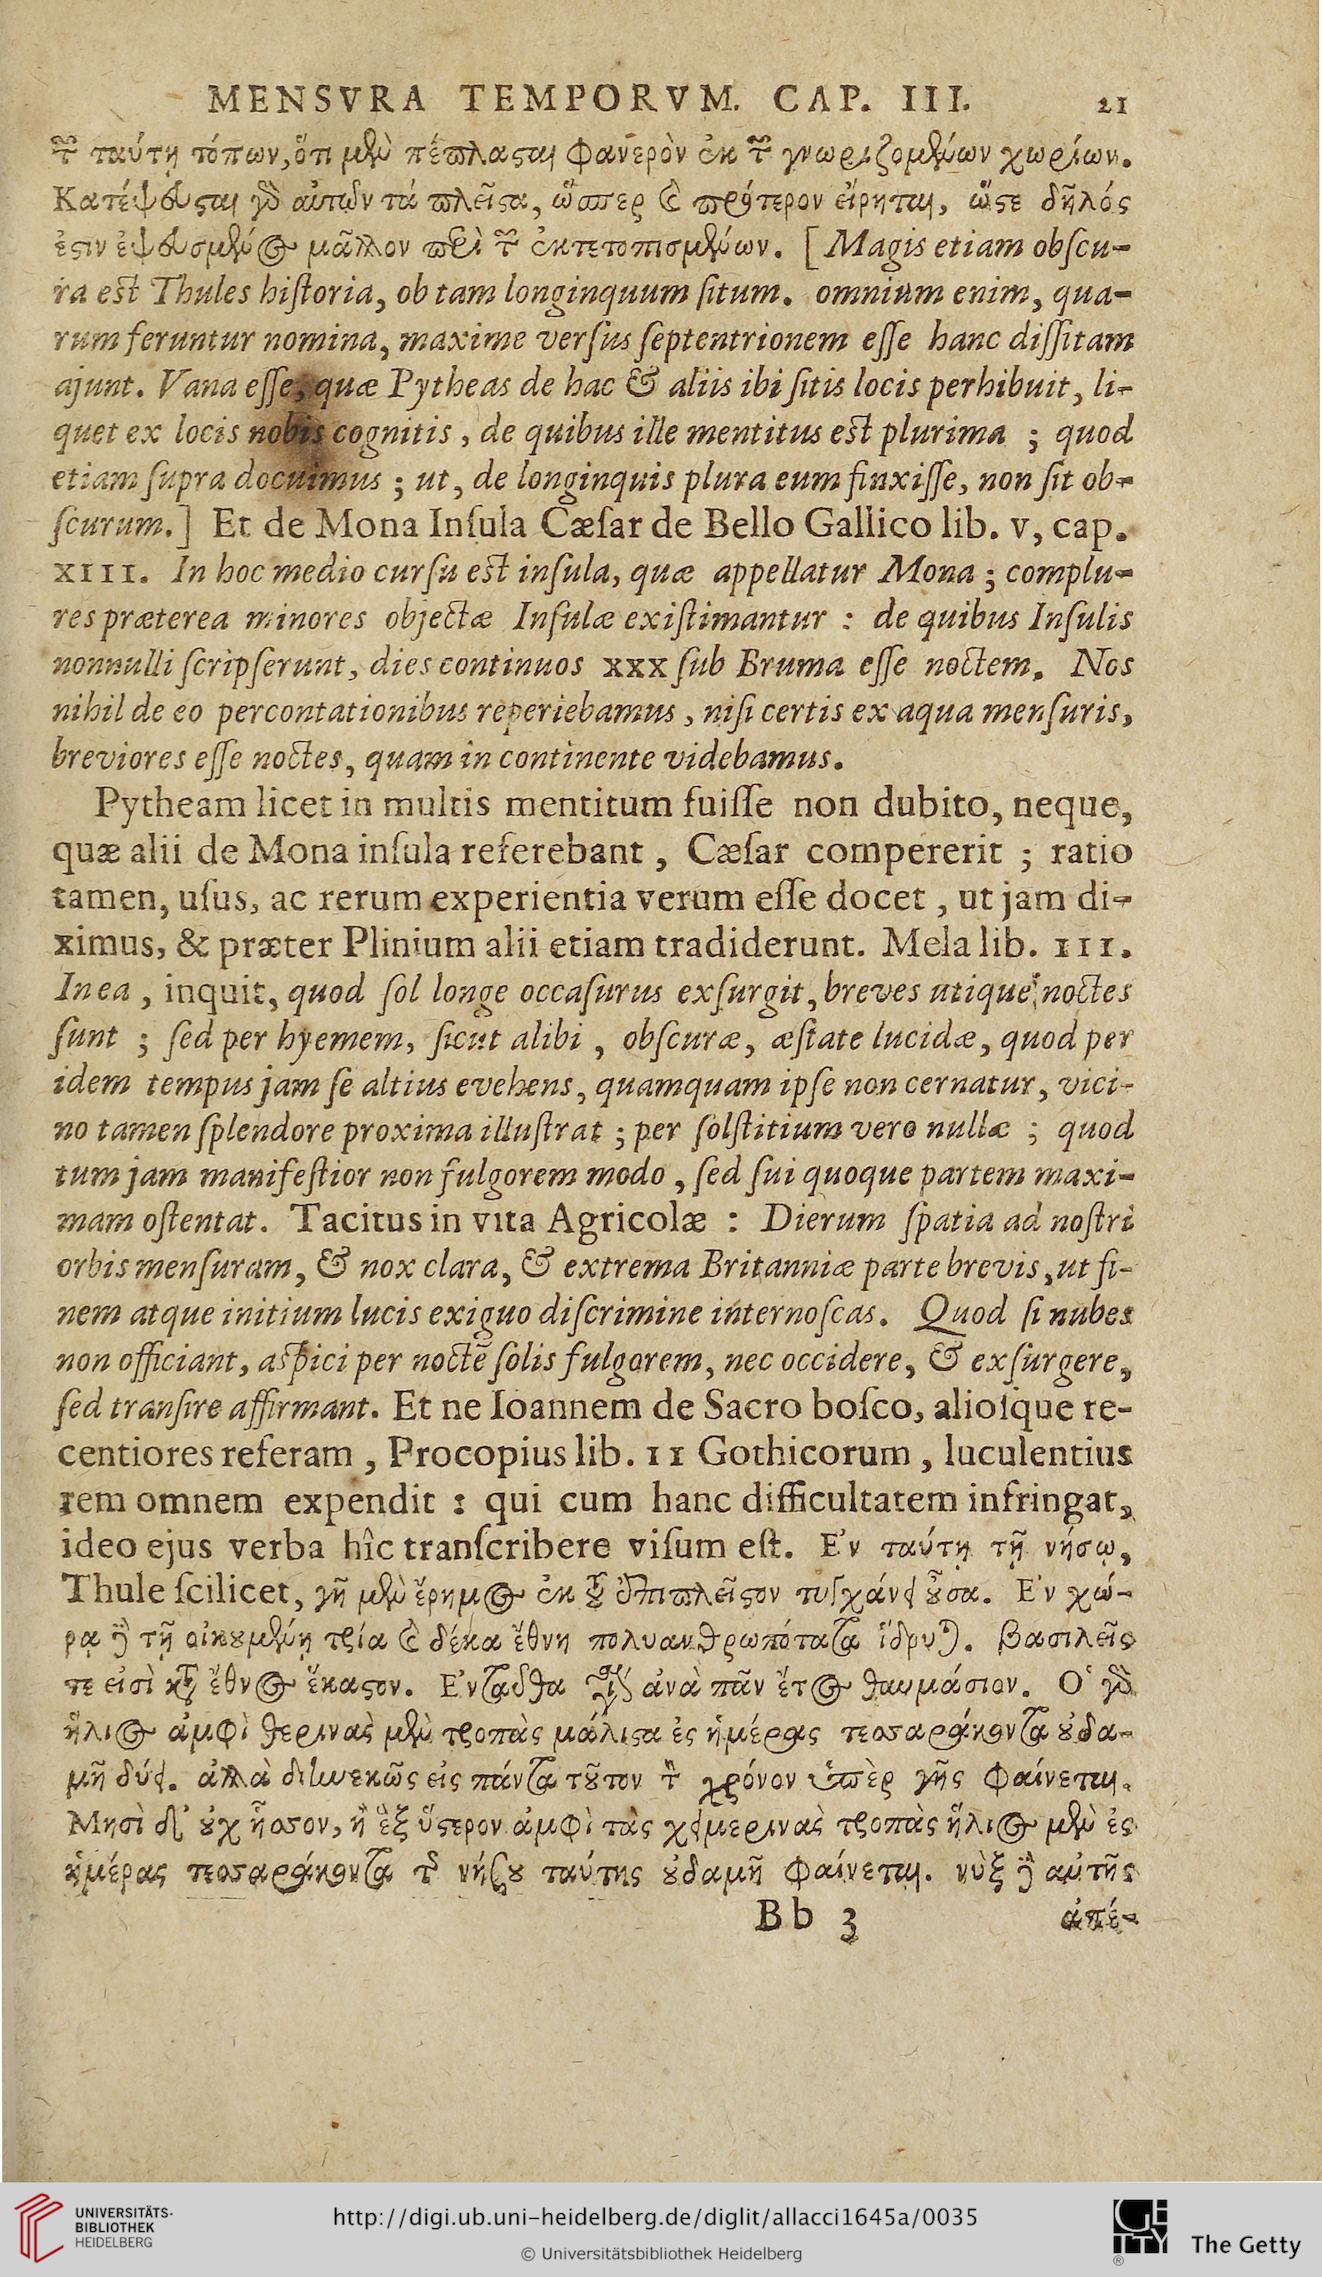 MENSVRA TEMPORVM. CAP. III. 21
τ͂ ταύτῃ τόπων, ὅτι μὲν πέπλασται φανερὸν ἐκ τ͂ γνωριζομένων χωρίων.
Κατέψευσται γὸ αὐτῶν τὰ πλεῖστα, ὥσπερ καὶ πρότερον εἴρηται, ὥστε δῆλός
ἐστιν ἐψευσμένος μᾶλλον περὶ τ͂ ἐκτετοπισμένων. [Magis etiam obſcu-
ra est Thules hiſtoria, ob tam longinquum ſitum. omnium enim, qua-
rum feruntur nomina, maxime verſus ſeptentrionem eſſe hanc diſſitam
ajunt. Vana eſſe, quæ Pytheas de hac & aliis ibi ſitis locis perhibuit, li-
quet ex locis nobis cognitis, de quibus ille mentitus est plurima ; quod
etiam ſupra docuimus ; ut, de longinquis plura eum finxiſſe, non ſit ob-
ſcurum.] Et de Mona Inſula Cæſar de Bello Gallico lib. v, cap.
XIII. In hoc medio curſu est inſula, quæ appellatur Mona ; complu-
res præterea minores objectæ Inſulæ exiſtimantur : de quibus Inſulis
nonnulli ſcripſerunt, dies continuos xxx ſub Bruma eſſe noctem. Nos
nihil de eo percontationibus reperiebamus, niſi certis ex aqua menſuris,
breviores eſſe noctes, quam in continente videbamus.
Pytheam licet in multis mentitum fuiſſe non dubito, neque,
quæ alii de Mona inſula referebant, Cæſar compererit ; ratio
tamen, uſus, ac rerum experientia verum eſſe docet, ut jam di-
ximus, & præter Plinium alii etiam tradiderunt. Mela lib. III.
In ea, inquit, quod ſol longe occaſurus exſurgit, breves utique noctes
ſunt ; ſed per hyemem, ſicut alibi, obſcuræ, æſtate lucidæ, quod per
idem tempus jam ſe altius evehens, quamquam ipſe non cernatur, vici-
no tamen ſplendore proxima illuſtrat ; per ſolſtitium vero nullæ ; quod
tum jam manifeſtior non fulgorem modo, ſed ſui quoque partem maxi-
mam oſtentat. Tacitus in vita Agricolæ : Dierum ſpatia ad noſtri
orbis menſuram, & nox clara, & extrema Britanniæ parte brevis, ut fi-
nem atque initium lucis exiguo diſcrimine internoſcas. Quod ſi nubes
non officiant, aſpici per noctē ſolis fulgorem, nec occidere, & exſurgere,
ſed tranſire affirmant. Et ne Ioannem de Sacro boſco, alioſque re-
centiores referam, Procopius lib. II Gothicorum, luculentius
rem omnem expendit : qui cum hanc difficultatem infringat,
ideo ejus verba hîc tranſcribere viſum eſt. Ε᾿ν ταύτῃ τῇ νήσῳ,
Thule ſcilicet, γῆ μὲν ἔρημος ἐκ τοῦ ἐπιπλεῖστον τυγχάνει οὖσα. Ε᾿ν χώ-
ρᾳ δὲ τῇ οἰκουμένῃ τρία καὶ δέκα ἔθνη πολυανθρωπότατα ἵδρυται. βασιλεῖς
τε εἰσὶ κατὰ ἔθνος ἕκαστον. Ε᾿νταῦθα γίνεταί τι ἀνὰ πᾶν ἔτος θαυμάσιον. Ο῾ γὸ
ἥλιος ἀμφὶ θερινὰς μὲν τροπὰς μάλιστα ἐς ἡμέρας τεσσαράκοντα οὐδα-
μῆ δύει. ἀλλὰ διηνεκῶς εἰς πάντα τοῦτον τ͂ χρόνον ὑπὲρ γῆς φαίνεται.
Μησὶ δὲ οὐχ ἧσσον, ἢ ἓξ ὕστερον ἀμφὶ τὰς χειμερινὰς τροπὰς ἥλιος μὲν ἐς
ἡμέρας τεσσαράκοντα τ͂ νήσου ταύτης οὐδαμῆ φαίνεται. νὺξ δὲ αὐτῆς
Bb 3 ἀπέ-
UNIVERSITÄTS-
BIBLIOTHEK
HEIDELBERG
http://digi.ub.uni-heidelberg.de/diglit/allacci1645a/0035
© Universitätsbibliothek Heidelberg
The Getty